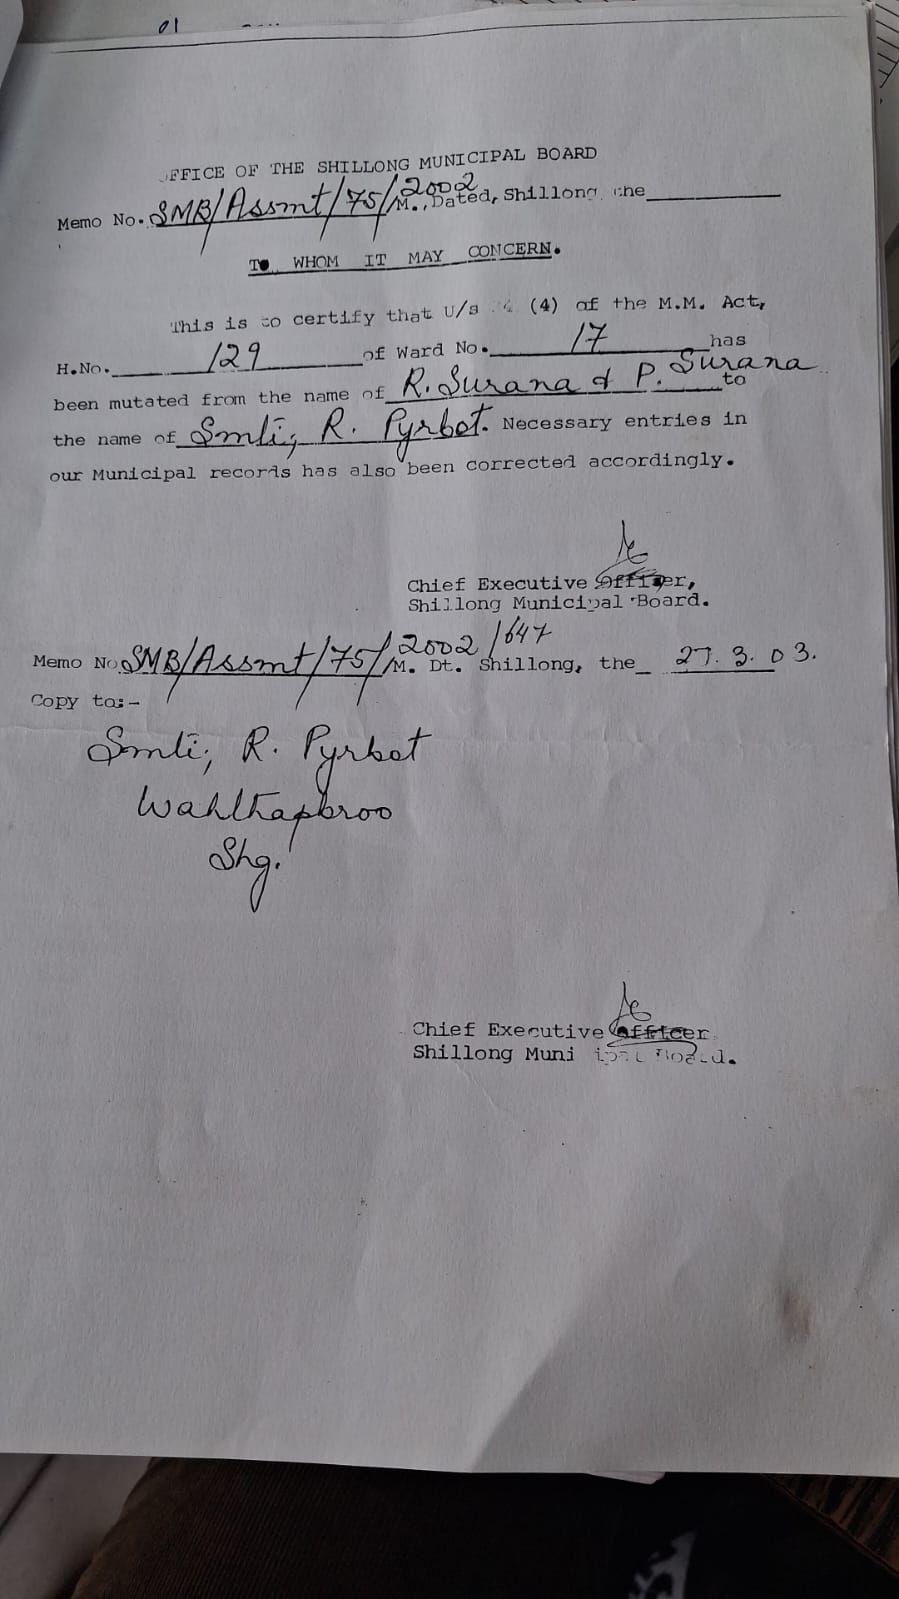 01
OFFICE OF THE SHILLONG MUNICIPAL BOARD
Memo No. SMB/Assmt/75/2002
M., Dated, Shillong the
TO WHOM IT MAY CONCERN.
This is to certify that U/s (4) of the M.M. Act,
H.No. 129 of Ward No. 17 has
been mutated from the name of R. Surana & P. Surana to
the name of Smti, R. Pyrbot. Necessary entries in
our Municipal records has also been corrected accordingly.
Chief Executive Officer,
Shillong Municipal Board.
Memo No SMB/Assmt/75/2002/647
M. Dt. Shillong, the 27.3.03.
Copy to:-
Smti, R. Pyrbot
Wahthapbroo
Shg.
Chief Executive Officer
Shillong Municipal Board.